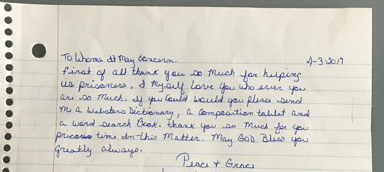 To Whom It May Concern. 4-3-2017
First of all thank you so much for helping
us prisoners, I myself love you who ever you
are so much. If you could would you please send
me a Websters Dictionary, a composition tablet and
a word search Book. thank you so much for you
time In this Matter. May GOD Bless you
greatly always.
Peace & Grace